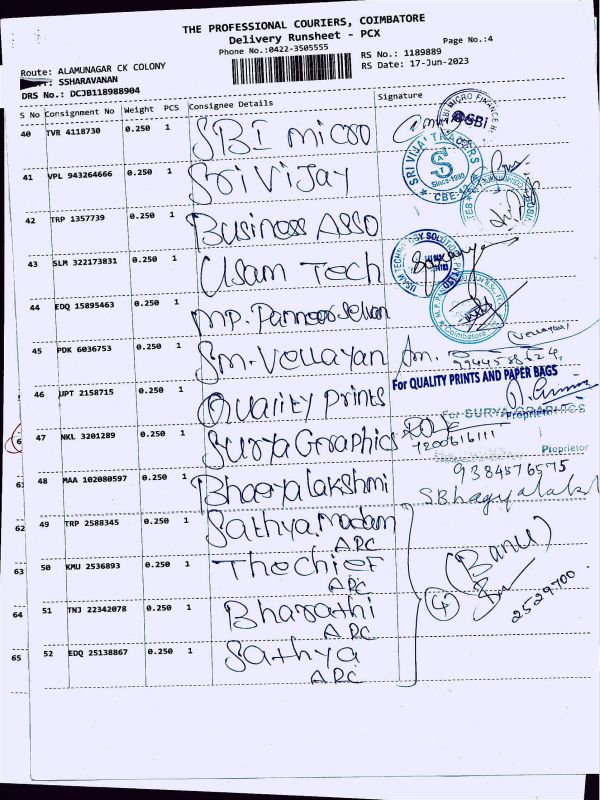 THE PROFESSIONAL COURIERS, COIMBATORE
Delivery Runsheet - PCX
Phone No.:0422-3505555
Page No.:4
RS No.: 1189889
RS Date: 17-Jun-2023
Route: ALAMUNAGAR CK COLONY
SSHARAVANAN
DRS No.: DCJB118988904
S No Consignment No Weight PCS Consignee Details Signature
40 TVR 4118730 0.250 1 SBI micro
41 VPL 943264666 0.250 1 Sri Vijay
SRI VIJAY TRADERS
Since-1980
CBE-12
42 TRP 1357739 0.250 1 Business Asso
43 SLM 322173831 0.250 1 Usam Tech
44 EDQ 15895463 0.250 1 MP. Panneerselvan
Coimbatore
45 PDK 6036753 0.250 1 Sm. Vellayan
(Vellayan)
9944588624
46 UPT 2158715 0.250 1 Quality Prints
For QUALITY PRINTS AND PAPER BAGS
Proprietor
47 NKL 3201289 0.250 1 Surya Graphics
For SURYA GRAPHICS
7200616111
Proprietor
48 MAA 102080597 0.250 1 Bhagyalakshmi
9384576575
S.Bhagyalaksh
62 49 TRP 2588345 0.250 1 Sathya.madam
APC
63 50 KMU 2536893 0.250 1 The chief
APC
(Banu)
64 51 TNJ 22342078 0.250 1 Bharathi
APC
4
2529700
65 52 EDQ 25138867 0.250 1 Sathya
APC